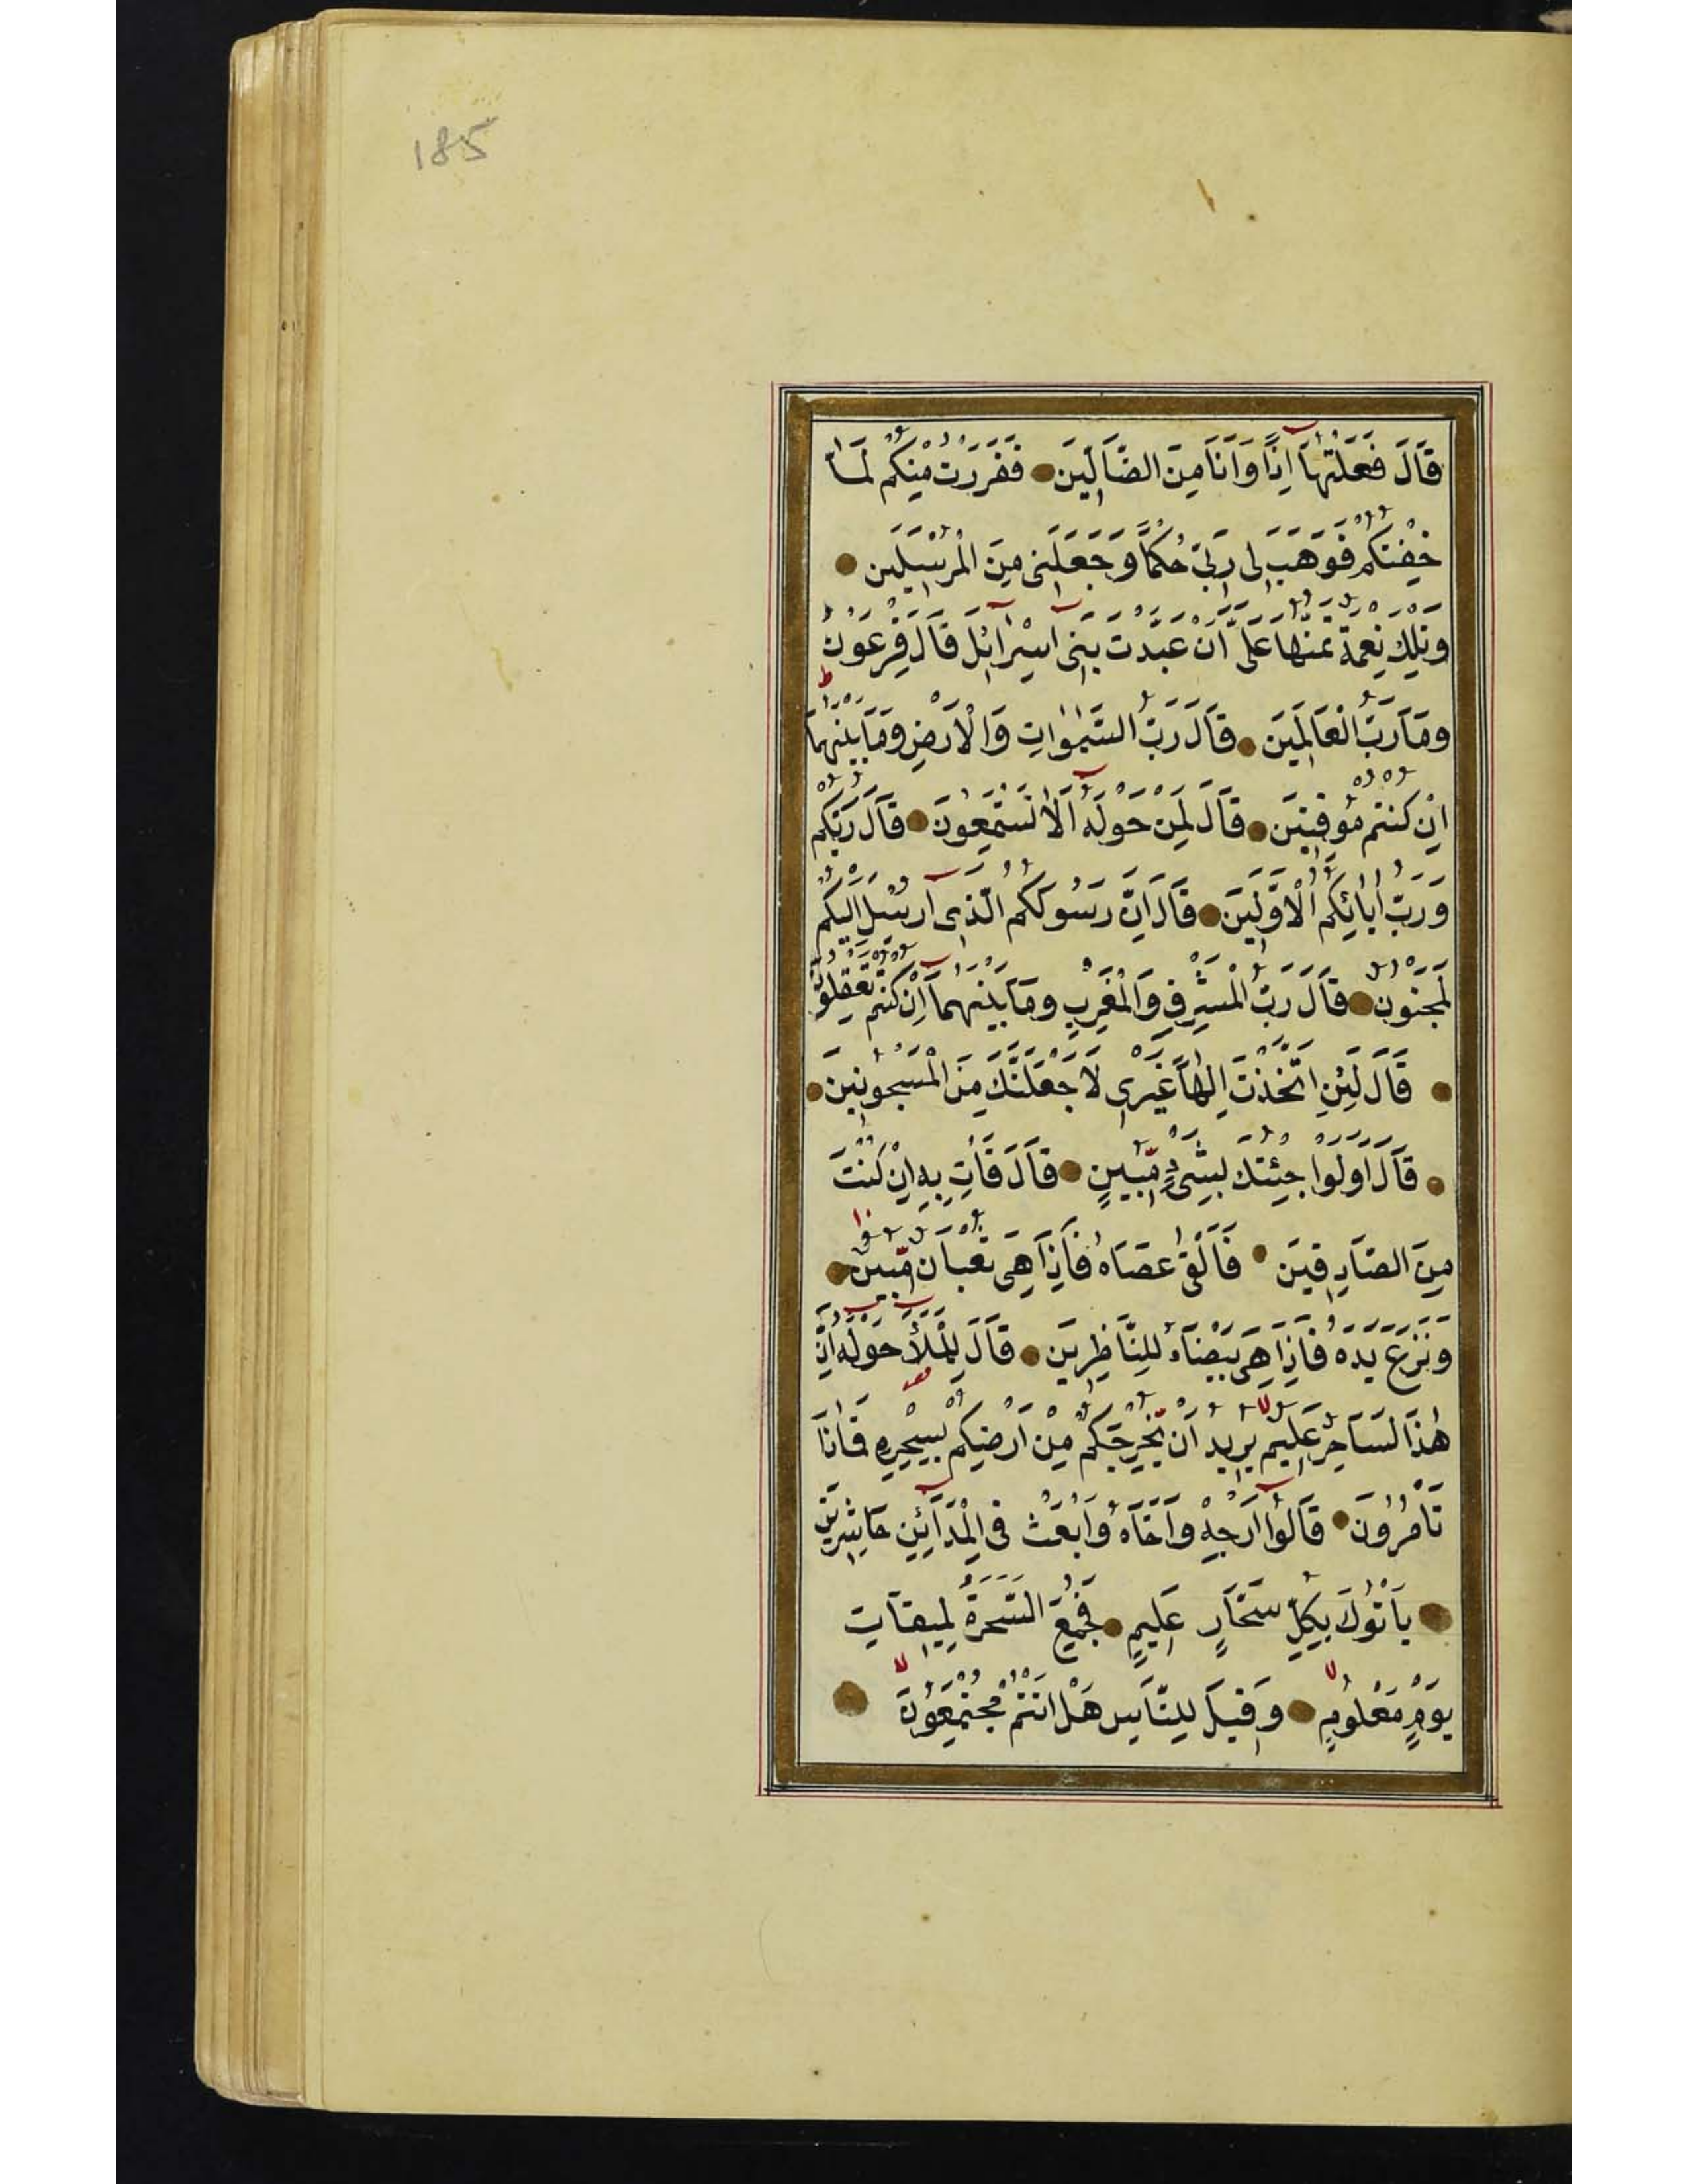 185
قَالَ فَعَلْتُهَا اِذًا وَاَنَا مِنَ الضَّالّٖينَ فَفَرَرْتُ مِنْكُمْ لَمَّا
خِفْتُكُمْ فَوَهَبَ لٖى رَبّٖى حُكْمًا وَجَعَلَنٖى مِنَ الْمُرْسَلٖينَ
وَتِلْكَ نِعْمَةٌ تَمُنُّهَا عَلَىَّ اَنْ عَبَّدْتَ بَنٖى اِسْرَائٖلَ قَالَ فِرْعَوْنُ
وَمَا رَبُّ الْعَالَمٖينَ قَالَ رَبُّ السَّمٰوَاتِ وَالْاَرْضِ وَمَا بَيْنَهُمَا
اِنْ كُنْتُمْ مُوقِنٖينَ قَالَ لِمَنْ حَوْلَهُ اَلَا تَسْتَمِعُونَ قَالَ رَبُّكُمْ
وَرَبُّ اٰبَائِكُمُ الْاَوَّلٖينَ قَالَ اِنَّ رَسُولَكُمُ الَّذٖى اُرْسِلَ اِلَيْكُمْ
لَمَجْنُونٌ قَالَ رَبُّ الْمَشْرِقِ وَالْمَغْرِبِ وَمَا بَيْنَهُمَا اِنْ كُنْتُمْ تَعْقِلُونَ
قَالَ لَئِنِ اتَّخَذْتَ اِلٰهًا غَيْرٖى لَاَجْعَلَنَّكَ مِنَ الْمَسْجُونٖينَ
قَالَ اَوَلَوْ جِئْتُكَ بِشَىْءٍ مُبٖينٍ قَالَ فَاْتِ بِهٖ اِنْ كُنْتَ
مِنَ الصَّادِقٖينَ فَاَلْقٰى عَصَاهُ فَاِذَا هِىَ ثُعْبَانٌ مُبٖينٌ
وَنَزَعَ يَدَهُ فَاِذَا هِىَ بَيْضَاءُ لِلنَّاظِرٖينَ قَالَ لِلْمَلَأِ حَوْلَهُ اِنَّ
هٰذَا لَسَاحِرٌ عَلٖيمٌ يُرٖيدُ اَنْ يُخْرِجَكُمْ مِنْ اَرْضِكُمْ بِسِحْرِهٖ فَمَاذَا
تَاْمُرُونَ قَالُوا اَرْجِهْ وَاَخَاهُ وَابْعَثْ فِى الْمَدَائِنِ حَاشِرٖينَ
يَاْتُوكَ بِكُلِّ سَحَّارٍ عَلٖيمٍ فَجُمِعَ السَّحَرَةُ لِمٖيقَاتِ
يَوْمٍ مَعْلُومٍ وَقٖيلَ لِلنَّاسِ هَلْ اَنْتُمْ مُجْتَمِعُونَ